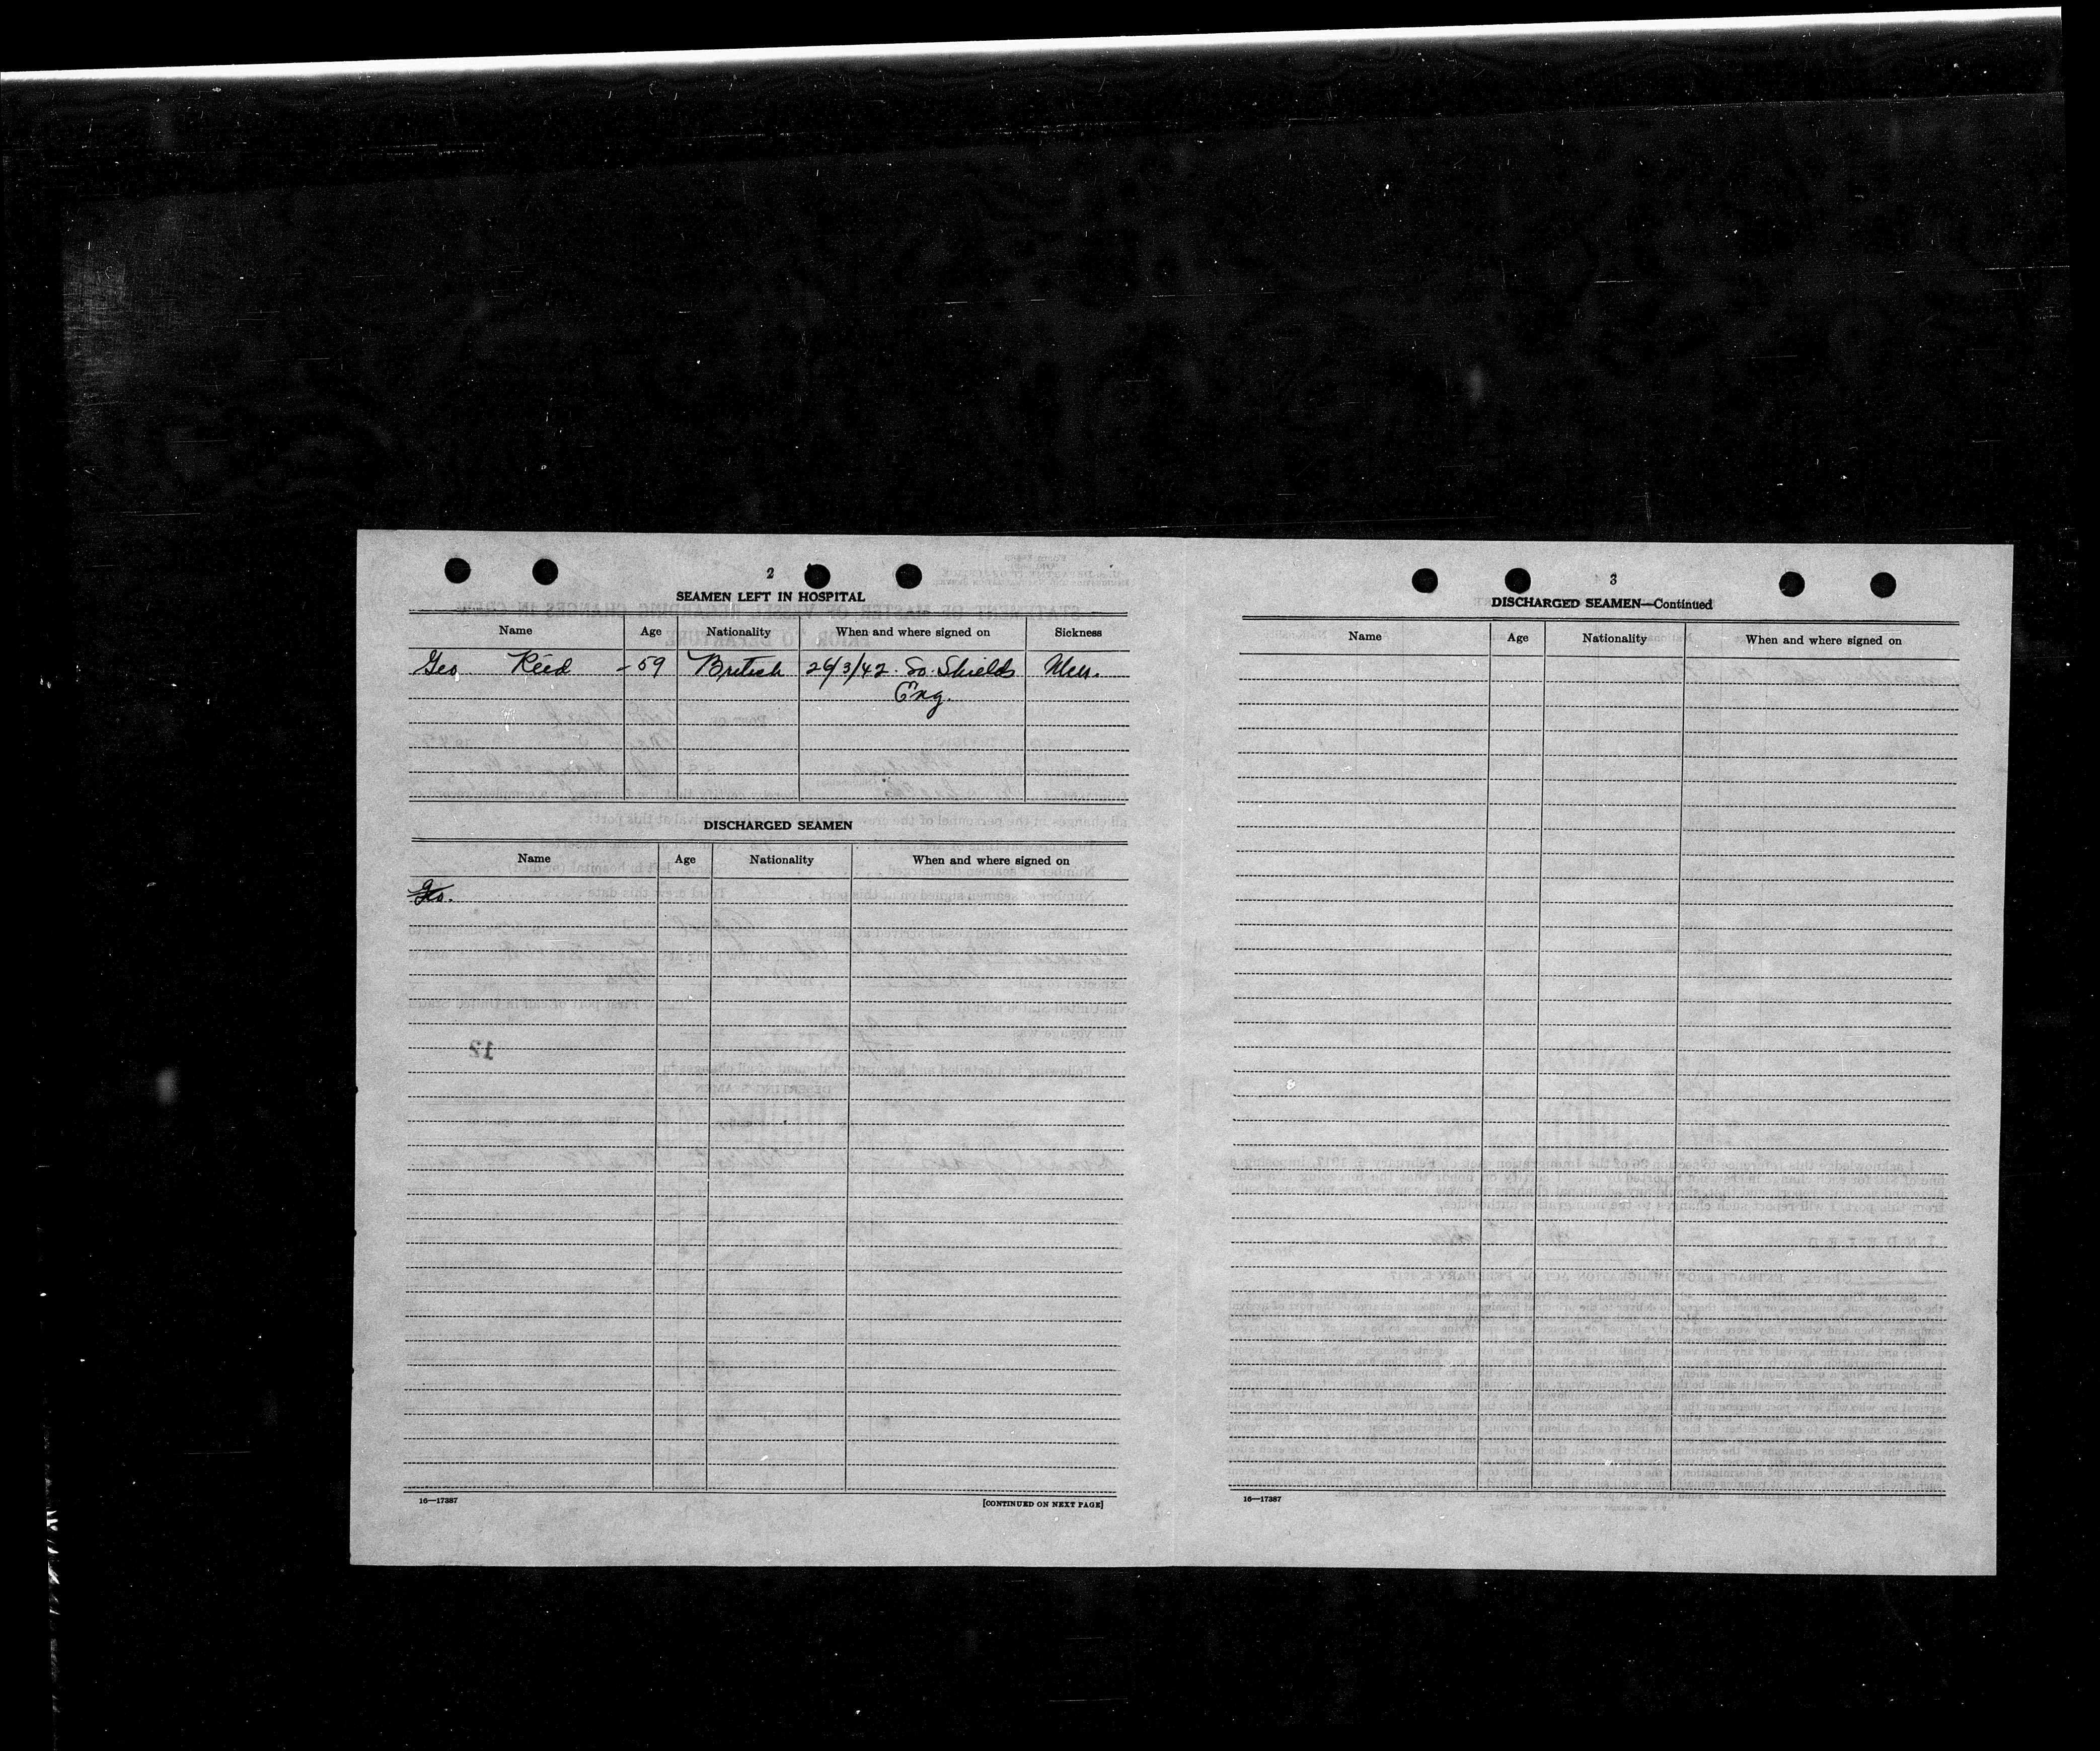 2
SEAMEN LEFT IN HOSPITAL
Name Age Nationality When and where signed on Sickness
Geo Reed - 59 British 26/3/42. So. Shields
Eng.
DISCHARGED SEAMEN
Name Age Nationality When and where signed on
Geo.
16—17387 [CONTINUED ON NEXT PAGE]
3
DISCHARGED SEAMEN—Continued
Name Age Nationality When and where signed on
16—17387